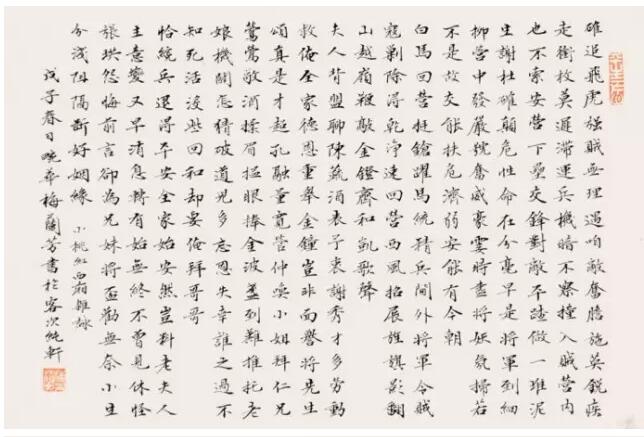 確追飛虎強賊無理逞咱敵奮膽施英銳疾
走銜枚莫遲滯運兵機暗不察撞入賊營內
也不索安營下壘交鋒對敵平踏做一堆泥
生謝杜確顛危性命在分毫早是將軍到細
柳營中發嚴號奮威豪霎時盡將妖氛掃若
不是故交能扶危濟弱安能有今朝
白馬回營挺鎗躍馬統精兵閫外將軍令賊
寇剿除得乾淨速回營西風招展旌旗影翻
山越嶺鞭敲金鐙齊和凱歌聲
夫人背盟聊陳蔬酒表予衷謝秀才多勞動
救俺全家德恩重舉金鐘豈非面譽將先生
頌真是才超孔融量寬管仲喚小姐拜仁兄
鶯鶯敬酒揉眉搵眼捧金波盞到難推托老
娘機關怎猜破道兄多忘恩失幸誰之過不
知死活沒些回和却要俺拜哥哥
恰統兵還得平安全家始安然豈料老夫人
主意變又早消息轉有始無終不曾見休怪
張珙怨悔前言卻為兄妹將盃勸無奈小生
分淺阻隔斷好姻緣 小桃紅西廂雜詠
戊子春日晚華梅蘭芳書於客次純軒